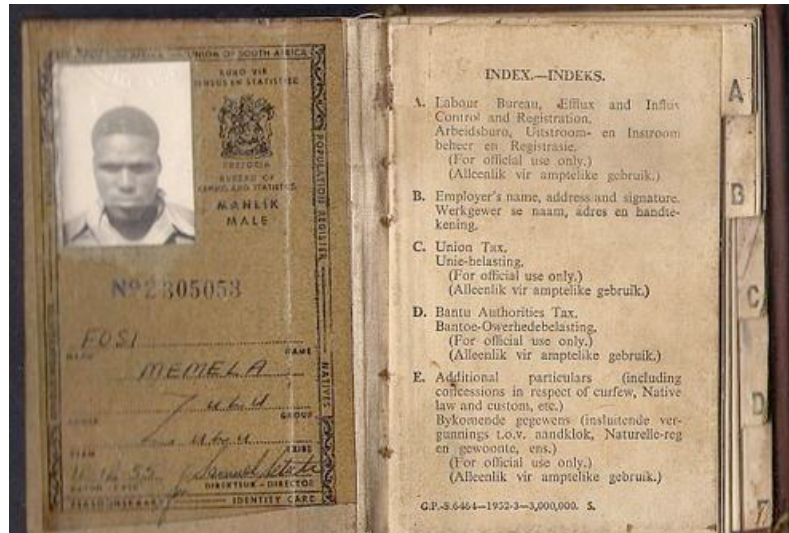 UNION OF SOUTH AFRICA
BURO VIR
SENSUS EN STATISTIEK
PRETORIA
BUREAU OF
CENSUS AND STATISTICS
MANLIK
MALE
POPULATION REGISTER
NATIVES
Nº 2305053
FOSI
NAAM NAME
MEMELA
Zulu
GROUP
Zulu
STAM TRIBE
DIREKTEUR - DIRECTOR
PERSOONSKAART IDENTITY CARD
INDEX.—INDEKS.
A. Labour Bureau, Efflux and Influx
Control and Registration.
Arbeidsburo, Uitstroom- en Instroom
beheer en Registrasie.
(For official use only.)
(Alleenlik vir amptelike gebruik.)
B. Employer's name, address and signature.
Werkgewer se naam, adres en handte-
kening.
C. Union Tax.
Unie-belasting.
(For official use only.)
(Alleenlik vir amptelike gebruik.)
D. Bantu Authorities Tax.
Bantoe-Owerhedebelasting.
(For official use only.)
(Alleenlik vir amptelike gebruik.)
E. Additional particulars (including
concessions in respect of curfew, Native
law and custom, etc.)
Bykomende gegewens (insluitende ver-
gunnings t.o.v. aandklok, Naturelle-reg
en gewoonte, ens.)
(For official use only.)
(Alleenlik vir amptelike gebruik.)
G.P.-S.6464—1952-3—3,000,000. S.
A
B
C
D